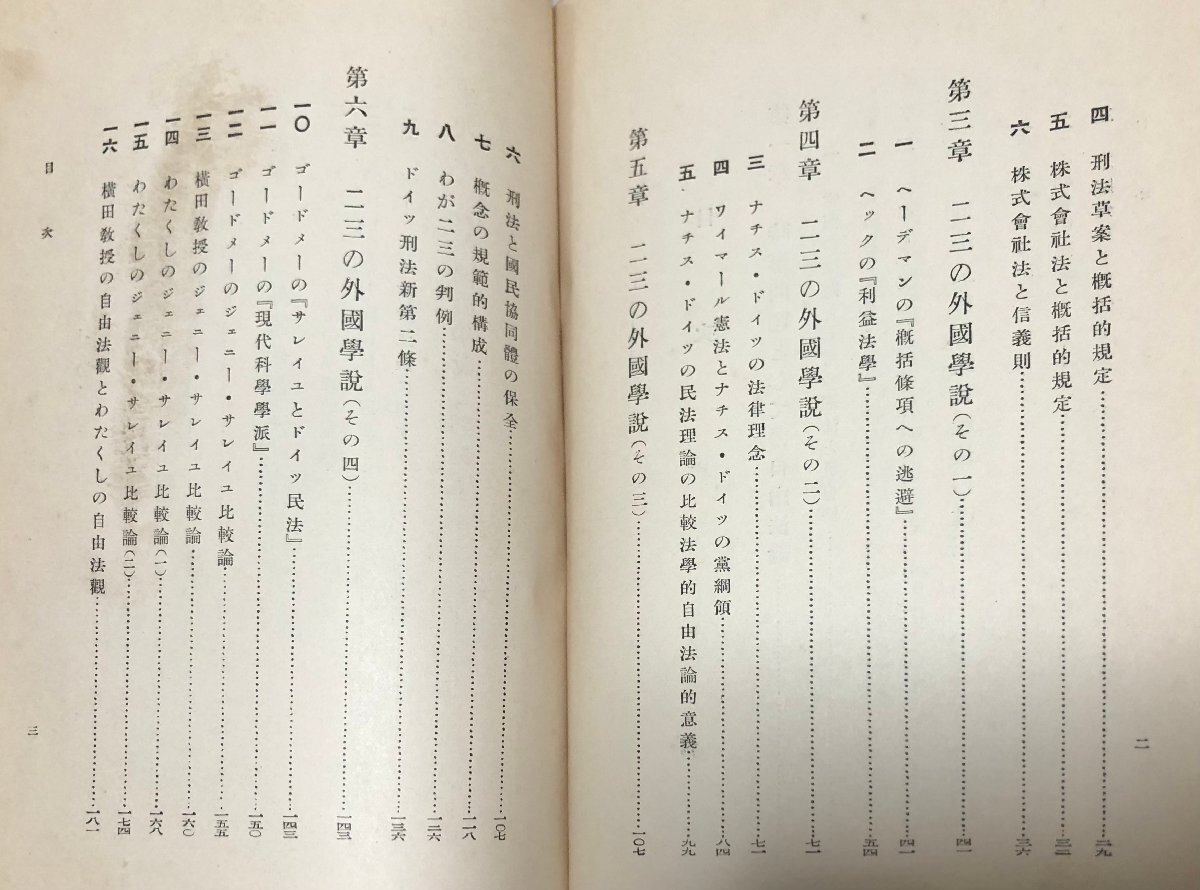 四 刑法草案と概括的規定……二九
五 株式會社法と概括的規定……三二
六 株式會社法と信義則……三六
第三章 二三の外國學說（その一）……四一
一 ヘーデマンの『概括條項への逃避』……四一
二 ヘックの『利益法學』……五四
第四章 二三の外國學說（その二）……七一
三 ナチス・ドイツの法律理念……七一
四 ワイマール憲法とナチス・ドイツの黨綱領……八四
五 ナチス・ドイツの民法理論の比較法學的自由法論的意義……九九
第五章 二三の外國學說（その三）……一〇七
二
六 刑法と國民協同體の保全……一〇七
七 概念の規範的構成……一一八
八 わが二三の判例……一二六
九 ドイツ刑法新第二條……一三六
第六章 二三の外國學說（その四）……一四三
一〇 ゴードメーの『サレイユとドイツ民法』……一四三
一一 ゴードメーの『現代科學學派』……一五〇
一二 ゴードメーのジェニー・サレイユ比較論……一五五
一三 橫田敎授のジェニー・サレイユ比較論……一六〇
一四 わたくしのジェニー・サレイユ比較論（一）……一六八
一五 わたくしのジェニー・サレイユ比較論（二）……一七四
一六 橫田敎授の自由法觀とわたくしの自由法觀……一八一
目次
三